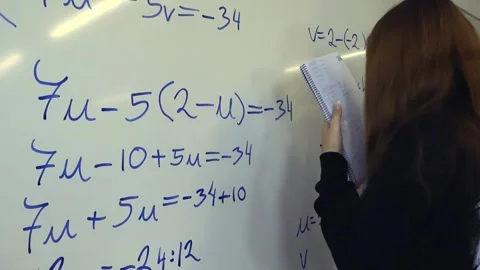 7u - 5v = -34
7u - 5(2-u) = -34
7u - 10 + 5u = -34
7u + 5u = -34 + 10
= -24:12
v = 2-(-2)
u =
v